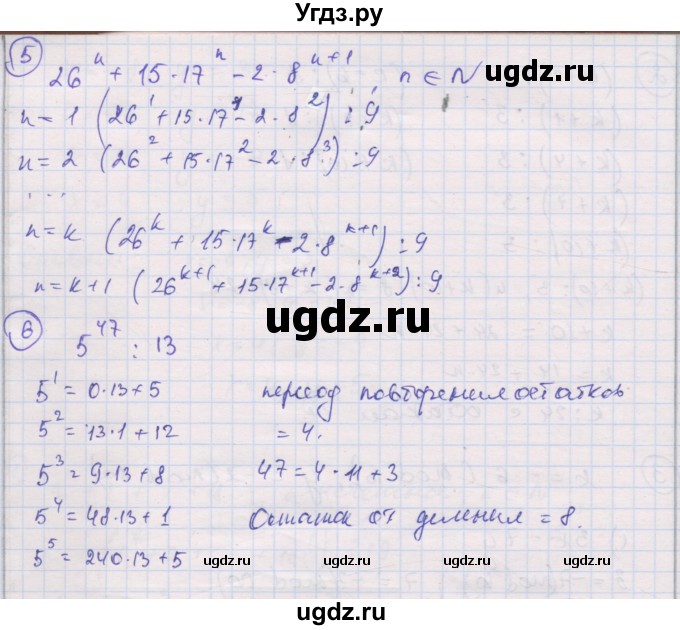 Угдз.ру
5
26ⁿ + 15·17ⁿ − 2·8ⁿ⁺¹, n ∈ N
ugdz.ru
n=1 (26¹ + 15·17¹ − 2·8²) ⋮ 9
n=2 (26² + 15·17² − 2·8³) ⋮ 9
...
n=k (26ᵏ + 15·17ᵏ − 2·8ᵏ⁺¹) ⋮ 9
n=k+1 (26ᵏ⁺¹ + 15·17ᵏ⁺¹ − 2·8ᵏ⁺²) ⋮ 9
ugdz.ru
6
5⁴⁷ : 13
5¹ = 0·13+5
период повторения остатков
5² = 13·1+12
= 4.
5³ = 9·13+8
47 = 4·11+3
5⁴ = 48·13+1
Остаток от деления = 8.
5⁵ = 240·13+5
ugdz.ru ugdz.ru ugdz.ru ugdz.ru ugdz.ru
ugdz.ru